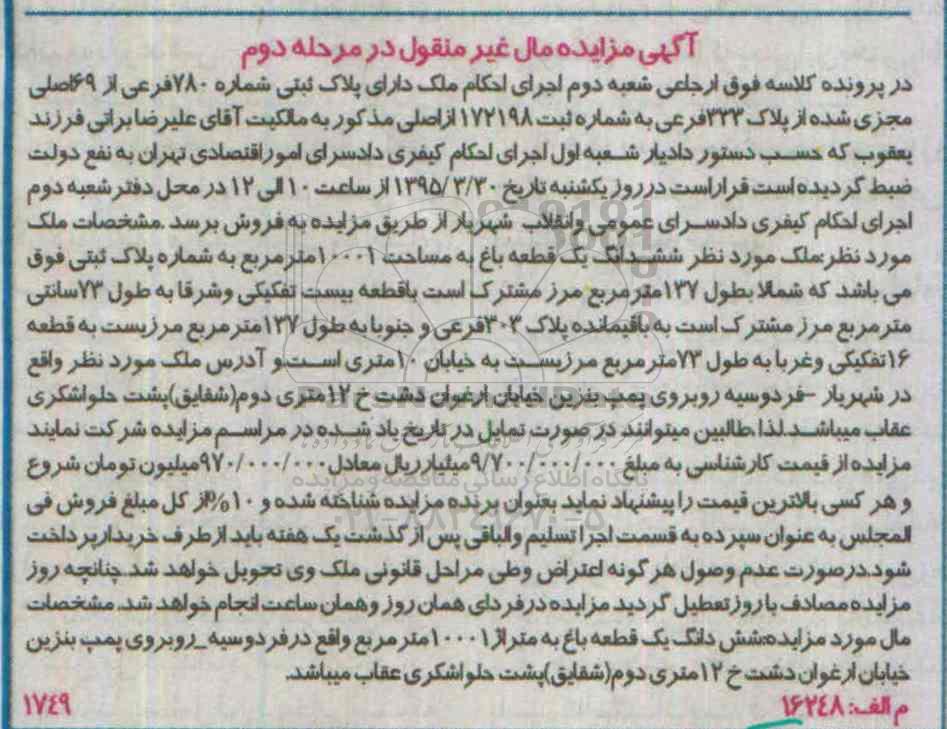 آگهی مزایده مال غیر منقول در مرحله دوم
در پرونده کلاسه فوق ارجاعی شعبه دوم اجرای احکام ملک دارای پلاک ثبتی شماره ۷۸۰فرعی از ۶۹اصلی
مجزی شده از پلاک ۳۳۳فرعی به شماره ثبت ۱۷۲۱۹۸ ازاصلی مذکور به مالکیت آقای علیرضا براتی فرزند
یعقوب که حسب دستور دادیار شعبه اول اجرای احکام کیفری دادسرای اموراقتصادی تهران به نفع دولت
ضبط گردیده است قراراست درروز یکشنبه تاریخ ۱۳۹۵/۳/۳۰ از ساعت ۱۰الی ۱۲ در محل دفتر شعبه دوم
اجرای احکام کیفری دادسرای عمومی وانقلاب شهریار از طریق مزایده به فروش برسد .مشخصات ملک
مورد نظر:ملک مورد نظر ششدانگ یک قطعه باغ به مساحت ۱۰۰۰۱مترمربع به شماره پلاک ثبتی فوق
می باشد که شمالا بطول ۱۳۷مترمربع مرز مشترک است باقطعه بیست تفکیکی وشرقا به طول ۷۳سانتی
مترمربع مرز مشترک است به باقیمانده پلاک ۳۰۳فرعی و جنوبا به طول ۱۳۷مترمربع مرزیست به قطعه
۱۶تفکیکی وغربا به طول ۷۳مترمربع مرزیست به خیابان ۱۰متری است.و آدرس ملک مورد نظر واقع
در شهریار -فردوسیه روبروی پمپ بنزین خیابان ارغوان دشت خ ۱۲متری دوم(شقایق)پشت حلواشکری
عقاب میباشد.لذا طالبین میتوانند در صورت تمایل در تاریخ یاد شده در مراسم مزایده شرکت نمایند
مزایده از قیمت کارشناسی به مبلغ ۹/۷۰۰/۰۰۰/۰۰۰میلیارریال معادل۹۷۰/۰۰۰/۰۰۰میلیون تومان شروع
و هر کسی بالاترین قیمت را پیشنهاد نماید بعنوان برنده مزایده شناخته شده و ۱۰%از کل مبلغ فروش فی
المجلس به عنوان سپرده به قسمت اجرا تسلیم والباقی پس از گذشت یک هفته باید ازطرف خریدارپرداخت
شود.درصورت عدم وصول هر گونه اعتراض وطی مراحل قانونی ملک وی تحویل خواهد شد.چنانچه روز
مزایده مصادف با روزتعطیل گردید مزایده درفردای همان روز وهمان ساعت انجام خواهد شد. مشخصات
مال مورد مزایده:شش دانگ یک قطعه باغ به متراژ۱۰۰۰۱ مترمربع واقع درفردوسیه_روبروی پمپ بنزین
خیابان ارغوان دشت خ ۱۲متری دوم(شقایق)پشت حلواشکری عقاب میباشد.
م الف: ۱۶۲۴۸
۱۷۴۹
پایگاه اطلاع رسانی مناقصه و مزایده